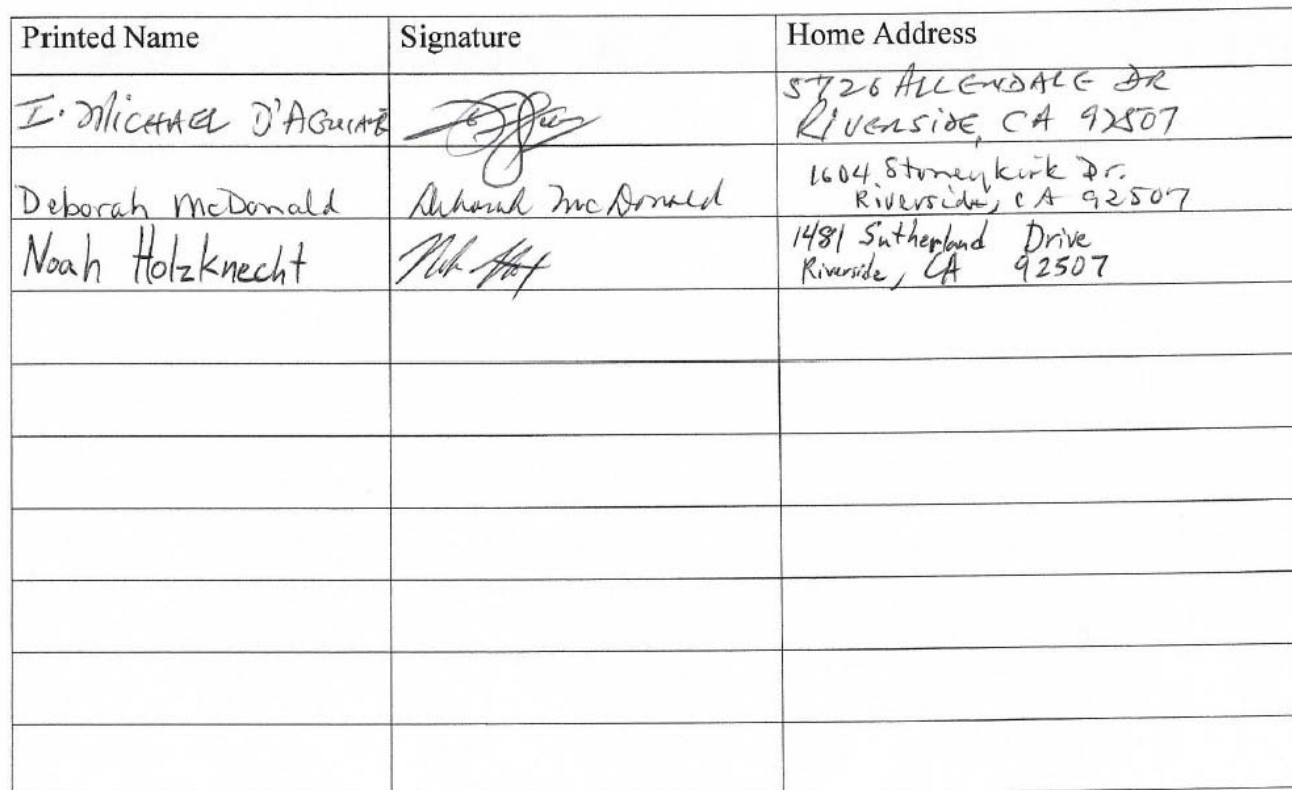 Printed Name Signature Home Address
I. MICHAEL D'AGUIAR 5726 ALLENDALE DR
RIVERSIDE, CA 92507
Deborah McDonald Deborah McDonald 1604 Stoneykirk Dr.
Riverside, CA 92507
Noah Holzknecht 1481 Sutherland Drive
Riverside, CA 92507